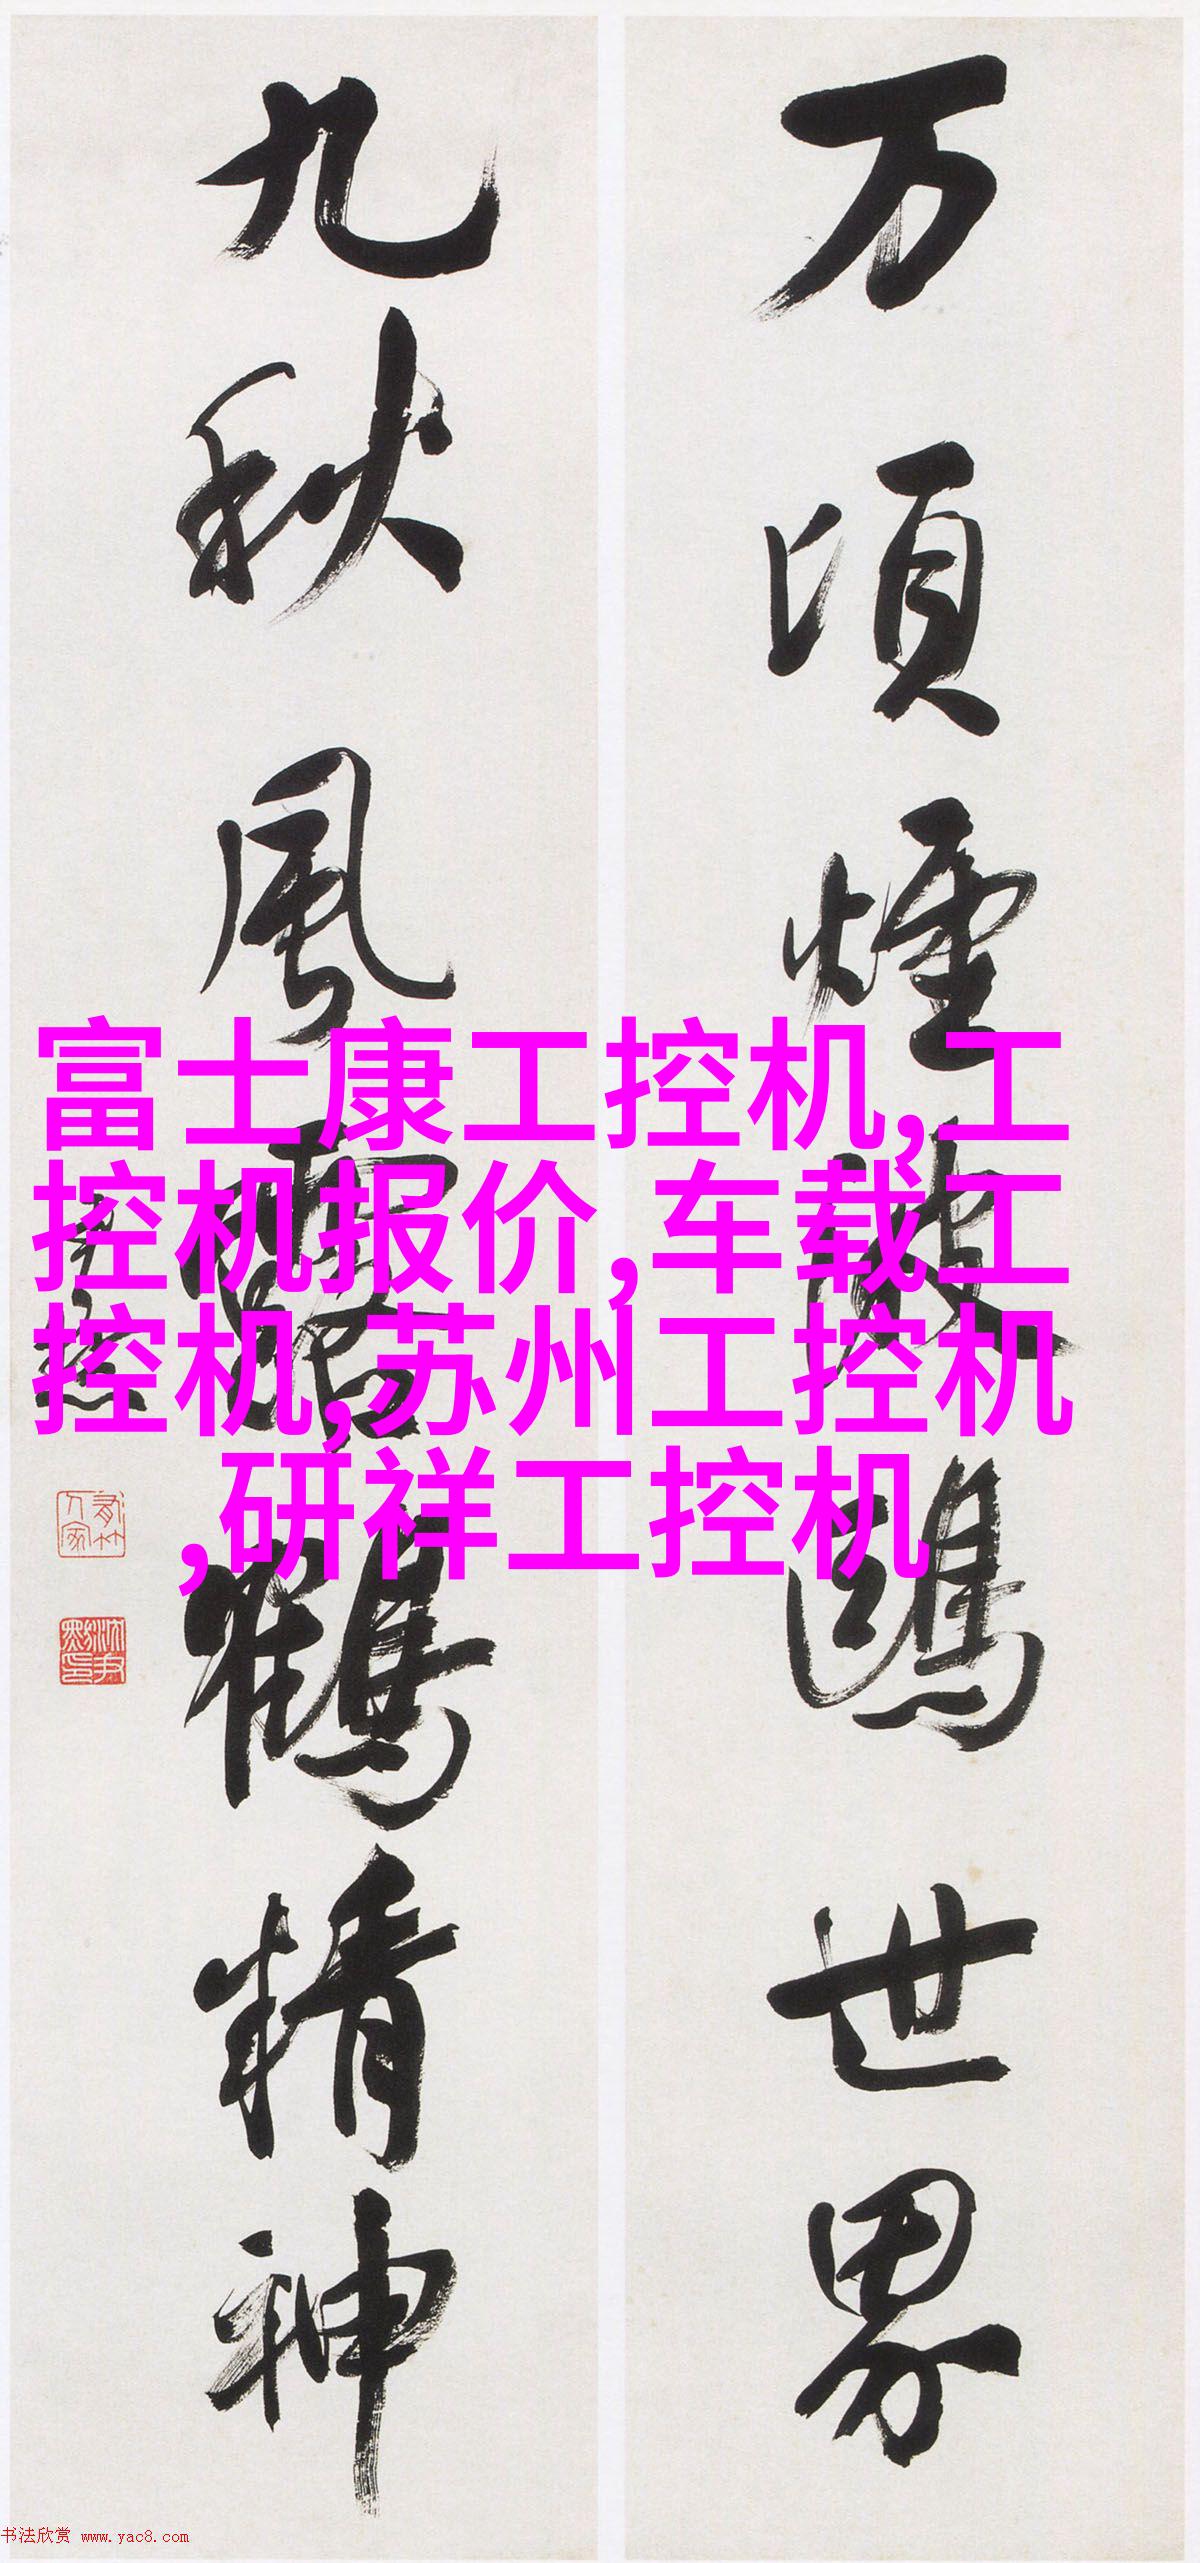 万顷煙波鷗世界
九秋風露鶴精神
尹默
沈尹默印
富士康工控机,工
控机报价,车载工
控机,苏州工控机
,研祥工控机
书法欣赏 www.yac8.com